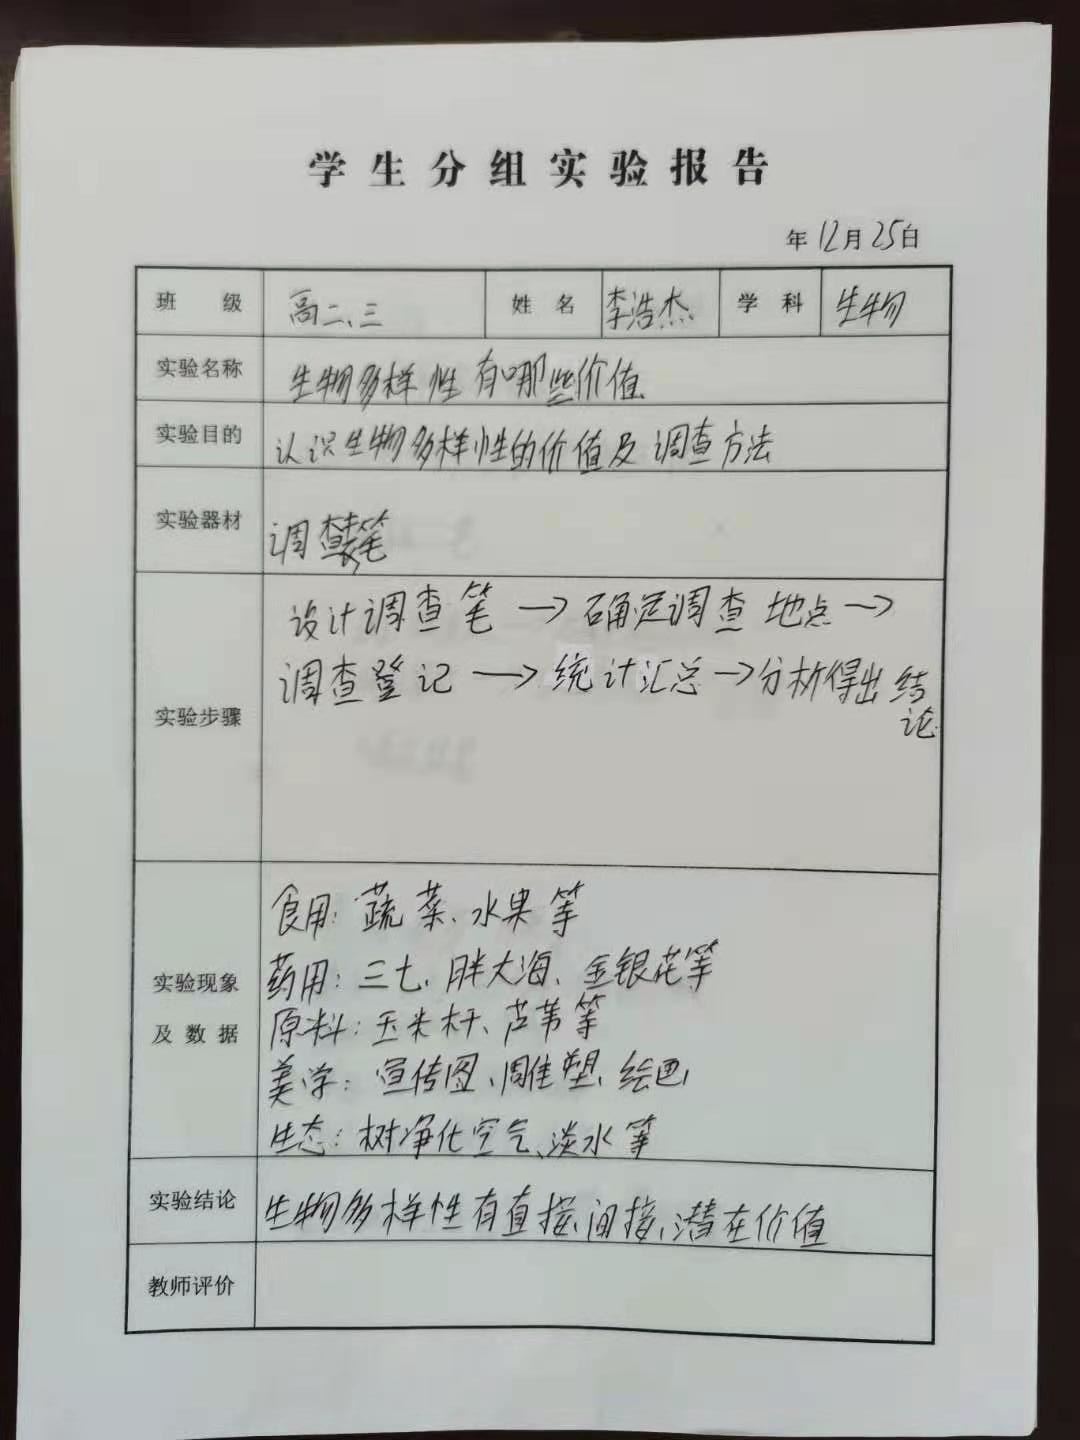 学生分组实验报告
年12月25日
班级 高二、三 姓名 李浩杰 学科 生物
实验名称 生物多样性有哪些价值
实验目的 认识生物多样性的价值及调查方法
实验器材 调查表笔
实验步骤
设计调查笔→确定调查地点→
调查登记→统计汇总→分析得出结论
实验现象及数据
食用:蔬菜、水果等
药用:三七、胖大海、金银花等
原料:玉米杆、芦苇等
美学:宣传图、雕塑、绘画
生态:树净化空气、淡水等
实验结论 生物多样性有直接、间接、潜在价值
教师评价